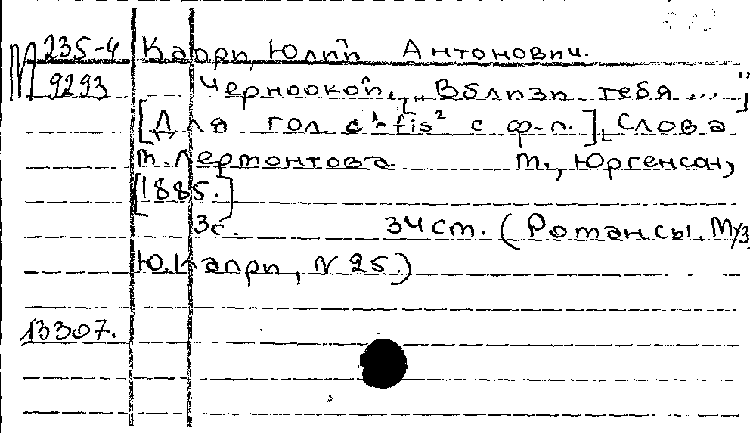 М 235-4 Капри, Юлий Антонович.
9293 Черноокой. „Вблизи тебя ..."
[Для гол. c¹-fis² с ф-п.] Слова
М. Лермонтова М., Юргенсон,
[1885.]
3с. 34 см. (Романсы. Муз.
Ю. Капри, N 25.)
13307.